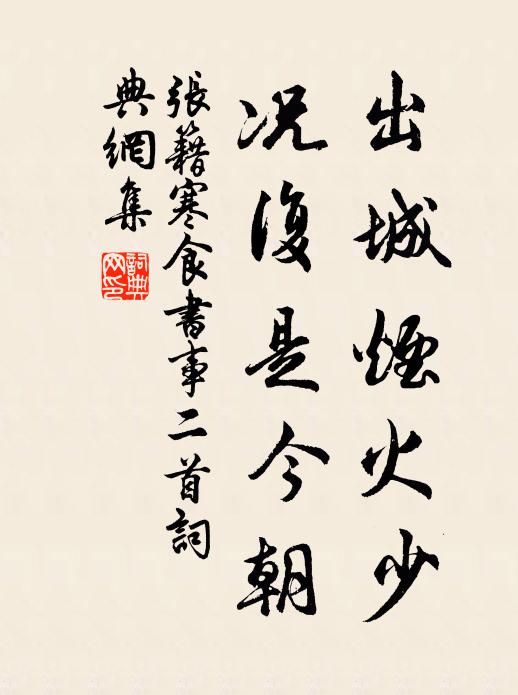 出城煙火少
况復是今朝
張籍寒食書事二首詞
典網集
詞典網印